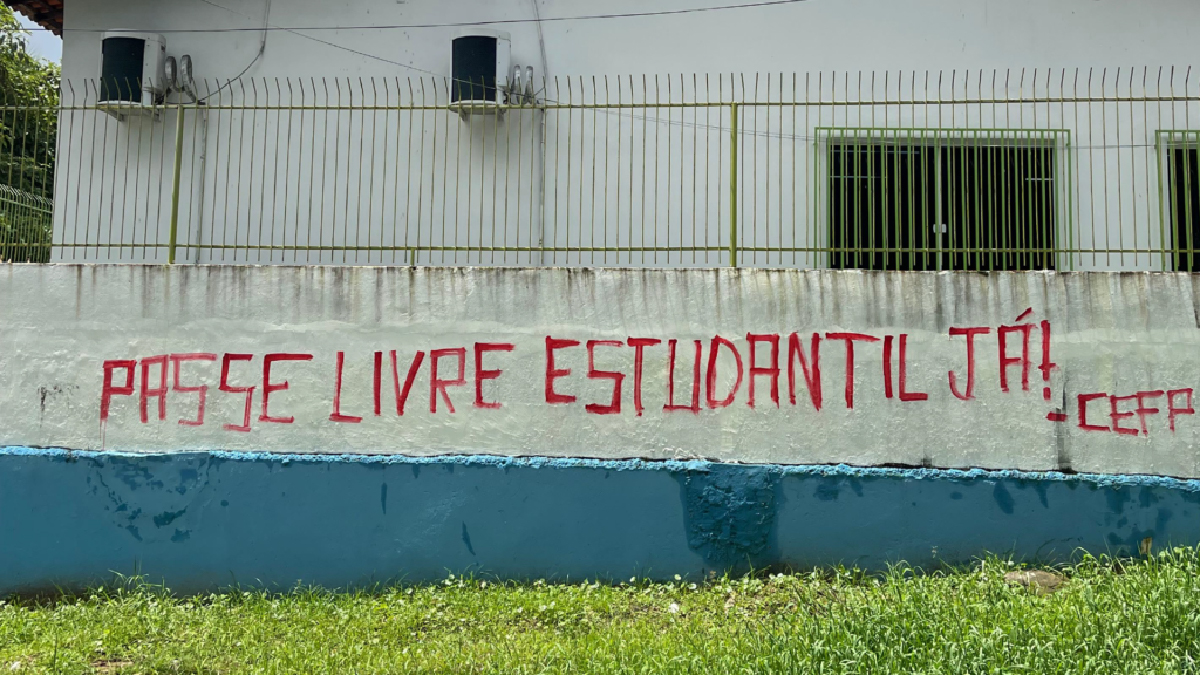 PASSE LIVRE ESTUDANTIL JÁ!
- CEFP